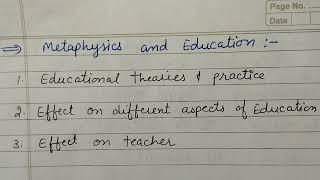 Page No.
Date
⇒ Metaphysics and Education :-
1. Educational theories & practice
2. Effect on different aspects of Education
3. Effect on teacher